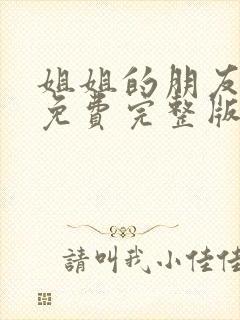 姐姐的朋友
免费完整版
請叫我小佳佳